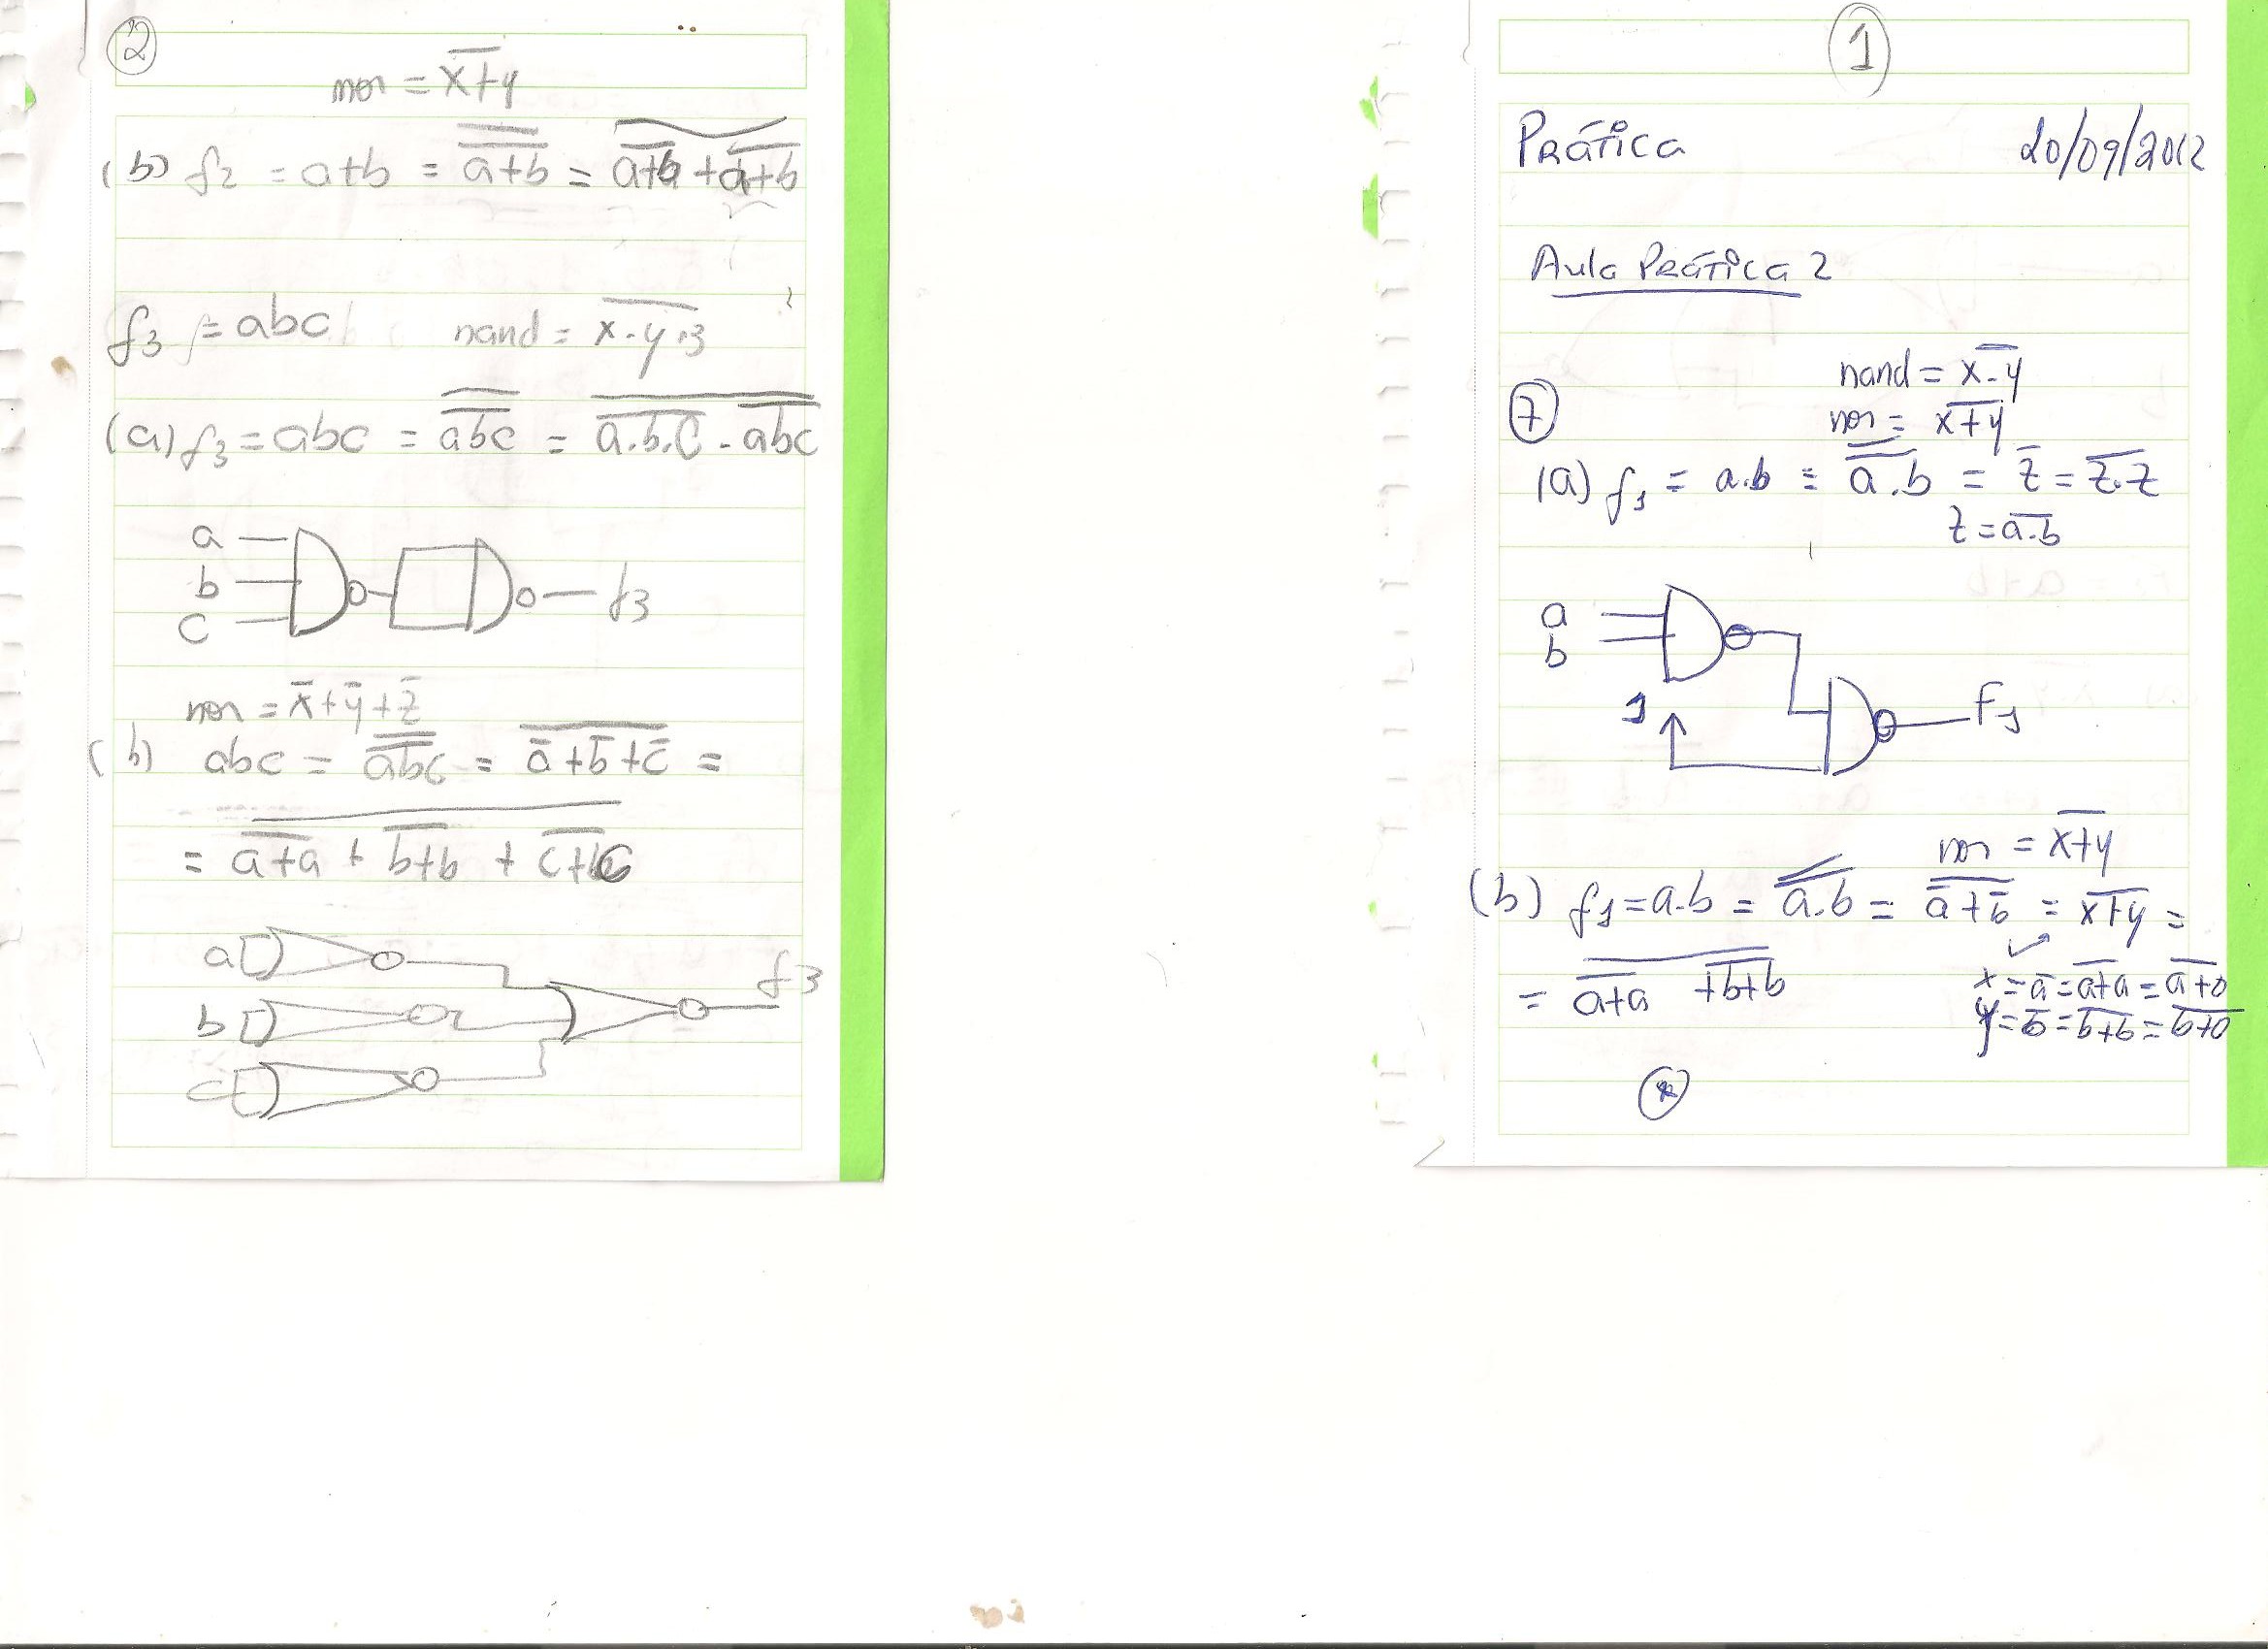 ②
nor = x̅+̅y̅
(b) f2 = a+b = a̿+̿b̿ = \overline{\overline{a+b} + \overline{a+b}}
f3 = abc nand = \overline{x.y.z}
(a) f3 = abc = \overline{\overline{abc}} = \overline{\overline{a.b.c} . \overline{abc}}
a
b
c
f3
nor = x̄+ȳ+z̄
(b) abc = \overline{\overline{abc}} = \overline{ā+b̄+c̄} =
= \overline{\overline{a+a} + \overline{b+b} + \overline{c+c}}
a
b
c
f3
①
Prática 20/09/2012
Aula Prática 2
nand = \overline{x.y}
⑦ nor = \overline{x+y}
(a) f1 = a.b = \overline{\overline{a.b}} = z̄ = \overline{z.z}
z = \overline{a.b}
a
b
1
f1
nor = \overline{x+y}
(b) f1 = a.b = \overline{\overline{a.b}} = \overline{ā+b̄} = \overline{x+y} =
= \overline{\overline{a+a} + \overline{b+b}} x = ā = \overline{a+a} = \overline{a+0}
y = b̄ = \overline{b+b} = \overline{b+0}
(*)